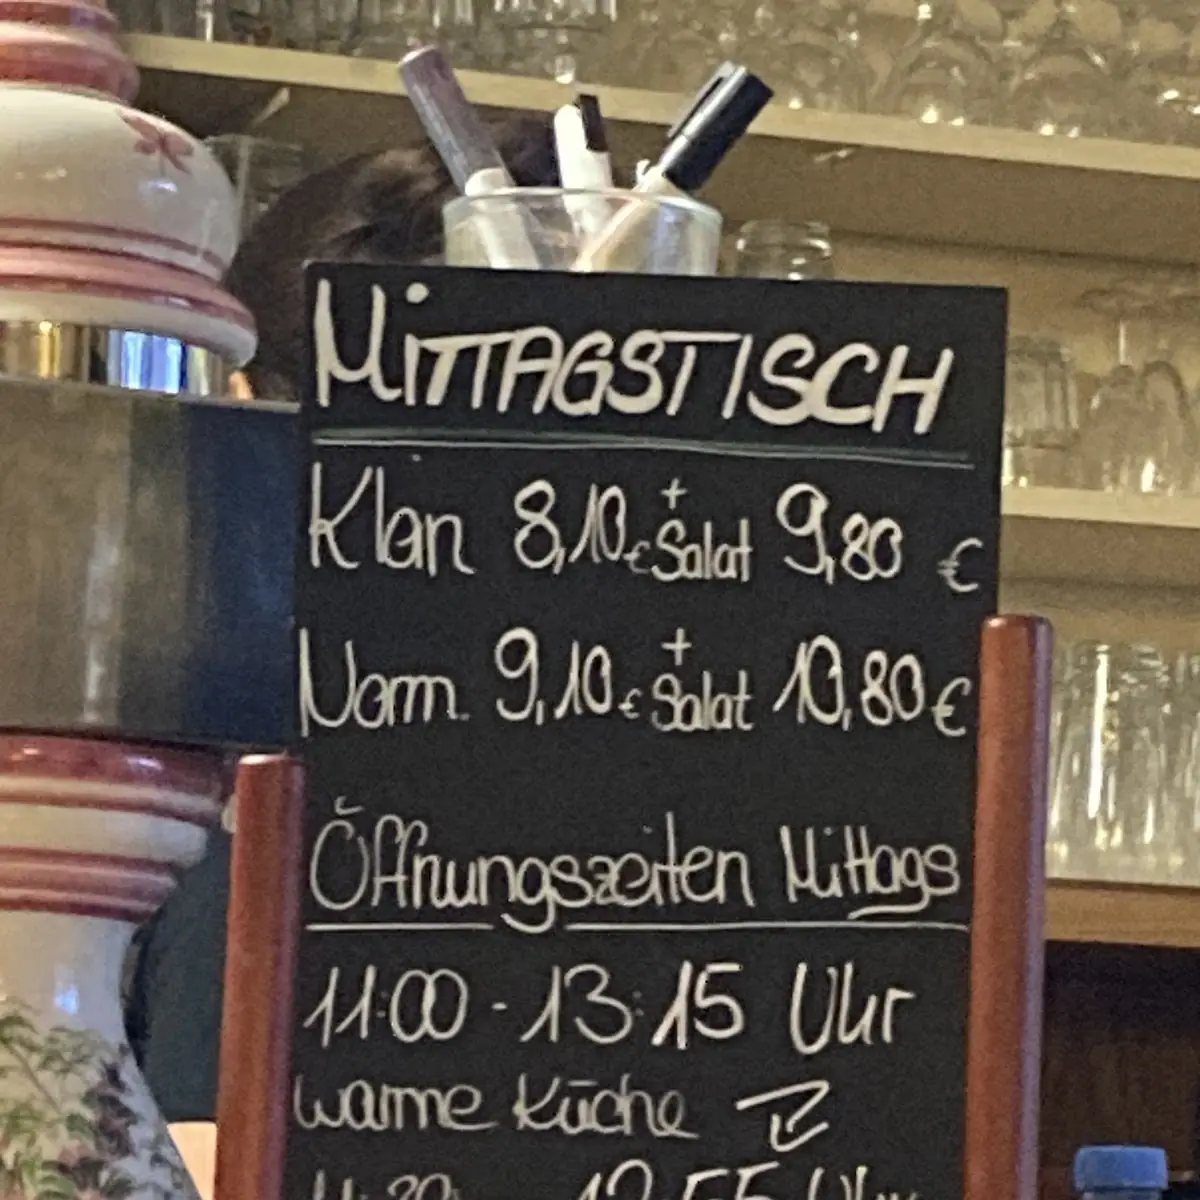 MITTAGSTISCH
Klein 8,10 € + Salat 9,80 €
Norm. 9,10 € + Salat 10,80 €
Öffnungszeiten Mittags
11:00 - 13:15 Uhr
warme Küche
Uhr